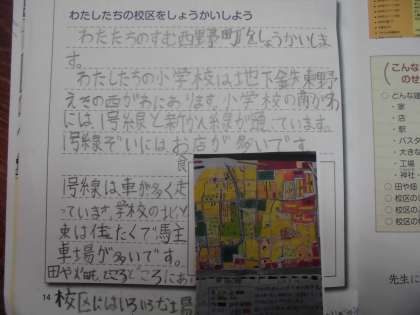 わたしたちの校区をしょうかいしよう
わたたちのすむ西野町をしょうかいしま
す。
わたしたちの小学校は地下鉄東野
えきの西がわにあります。小学校の南がわ
には1号線と新かん線が通っています。
1号線ぞいにはお店が多いです
1号線は車が多く走
っています。学校の北と
東は住たくで馬主
車場が多いです。
田や畑も、ところどころにあ
14
校区にはいろいろな工場
こんな
のせ
○どんな建
・家
・店
・駅
・バスタ
・大きな
・工場
・神社・
○田や畑
○校区の
○校区の
○校区に
先生に